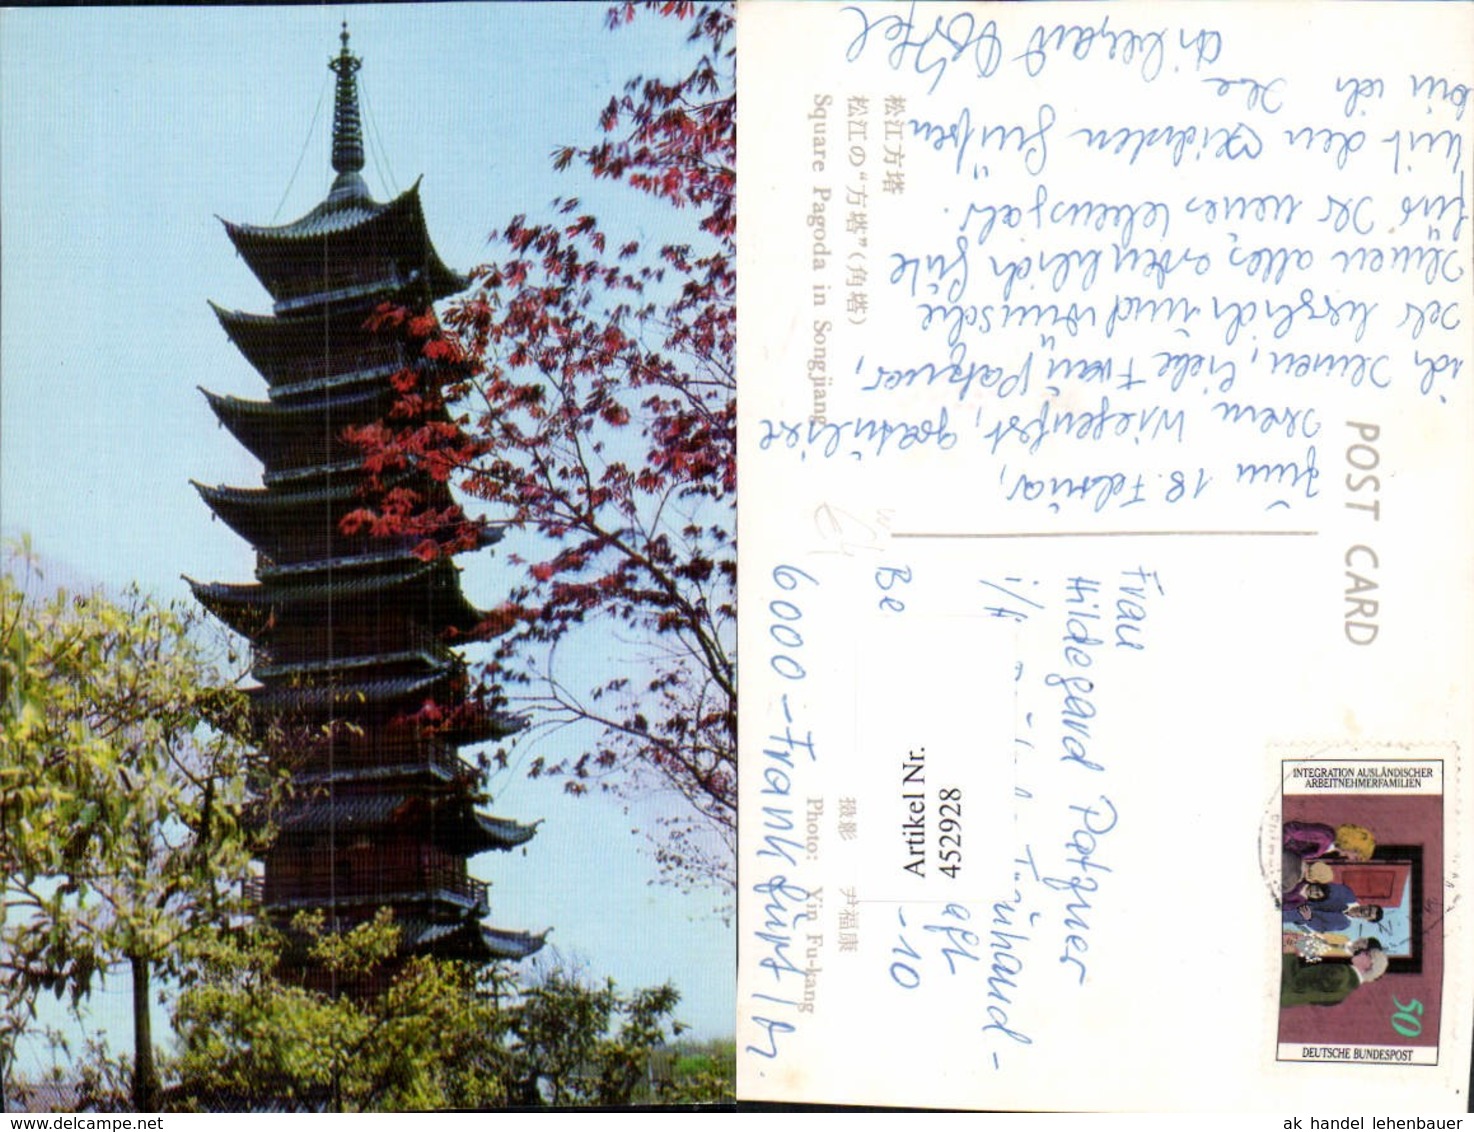 POST CARD
松江方塔
松江の“方塔”(角塔)
Square Pagoda in Songjiang
摄影 尹福康
Photo: Yin Fu-kang
Zum 18. Februar,
Ihrem Wiegenfest, gratuliere
ich Ihnen, liebe Frau Patzner,
sehr herzlich und wünsche
Ihnen alles erdenklich Gute
für Ihr neues Lebensjahr.
Mit den Grüßen
bin ich Ihre
Frau
Hildegard Patzner
Be
-10
6000-Frankfurt/M.
Artikel Nr.
4529928
INTEGRATION AUSLÄNDISCHER
ARBEITNEHMERFAMILIEN
50
DEUTSCHE BUNDESPOST
ak handel lehenbauer